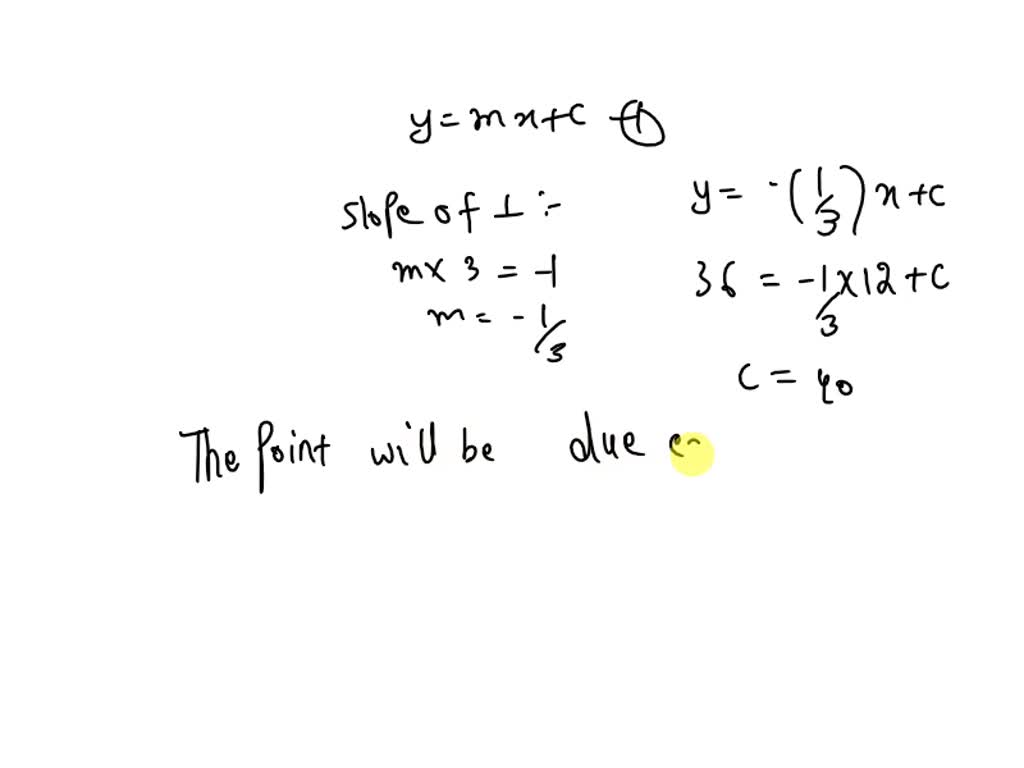 y = mx + c ①
slope of ⊥ :-
m x 3 = -1
m = - 1/3
y = -(1/3) x + c
36 = -1/3 x 12 + c
c = 40
The point will be due